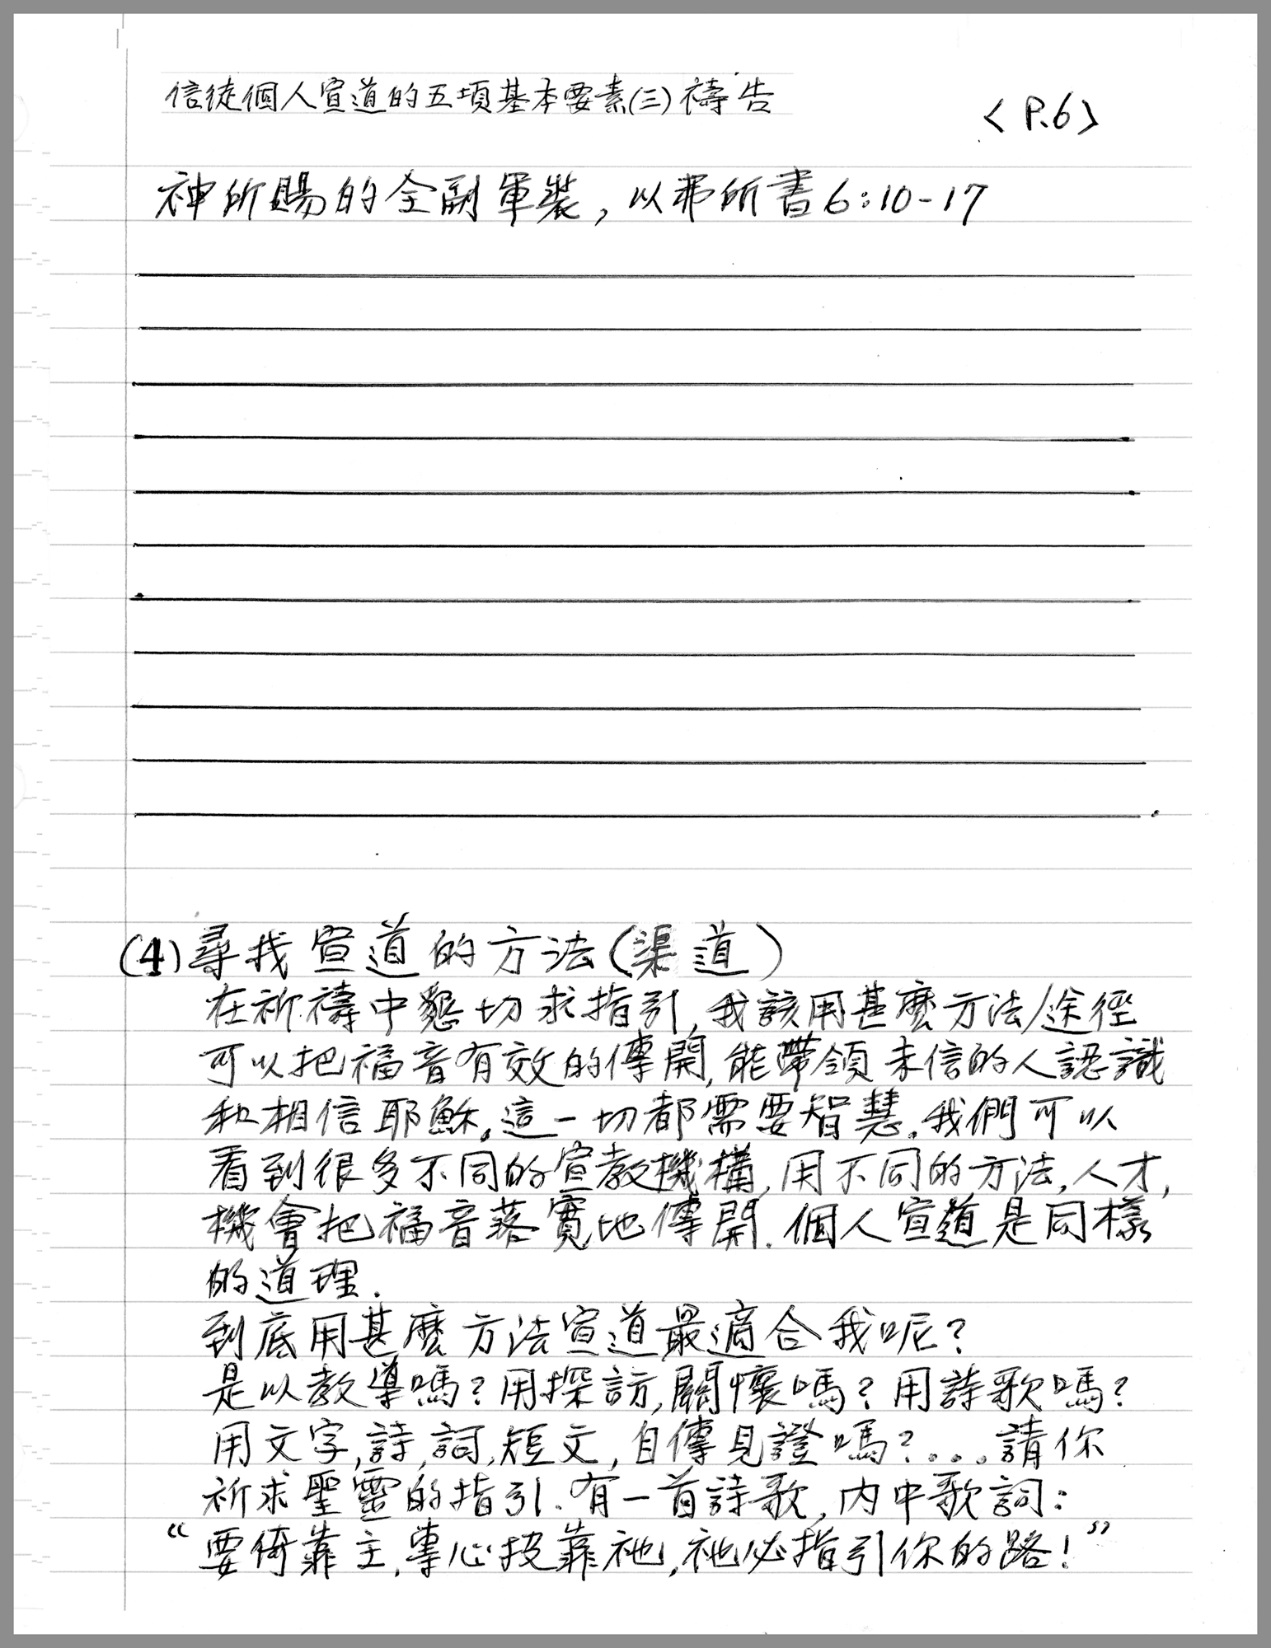 信徒個人宣道的五項基本要素(三)禱告
<P.6>
神所賜的全副軍裝, 以弗所書6:10-17
(4)尋找宣道的方法(渠道)
在祈禱中懇切求指引, 我該用甚麼方法/途徑
可以把福音有效的傳開, 能帶領未信的人認識
和相信耶穌。這一切都需要智慧。我們可以
看到很多不同的宣教機構, 用不同的方法, 人才,
機會把福音落實地傳開. 個人宣道是同樣
的道理.
到底用甚麼方法宣道最適合我呢?
是以教導嗎? 用探訪, 關懷嗎? 用詩歌嗎?
用文字, 詩, 詞, 短文, 自傳見證嗎?... 請你
祈求聖靈的指引. 有一首詩歌, 內中歌詞:
“要倚靠主, 專心投靠祂, 祂必指引你的路!”